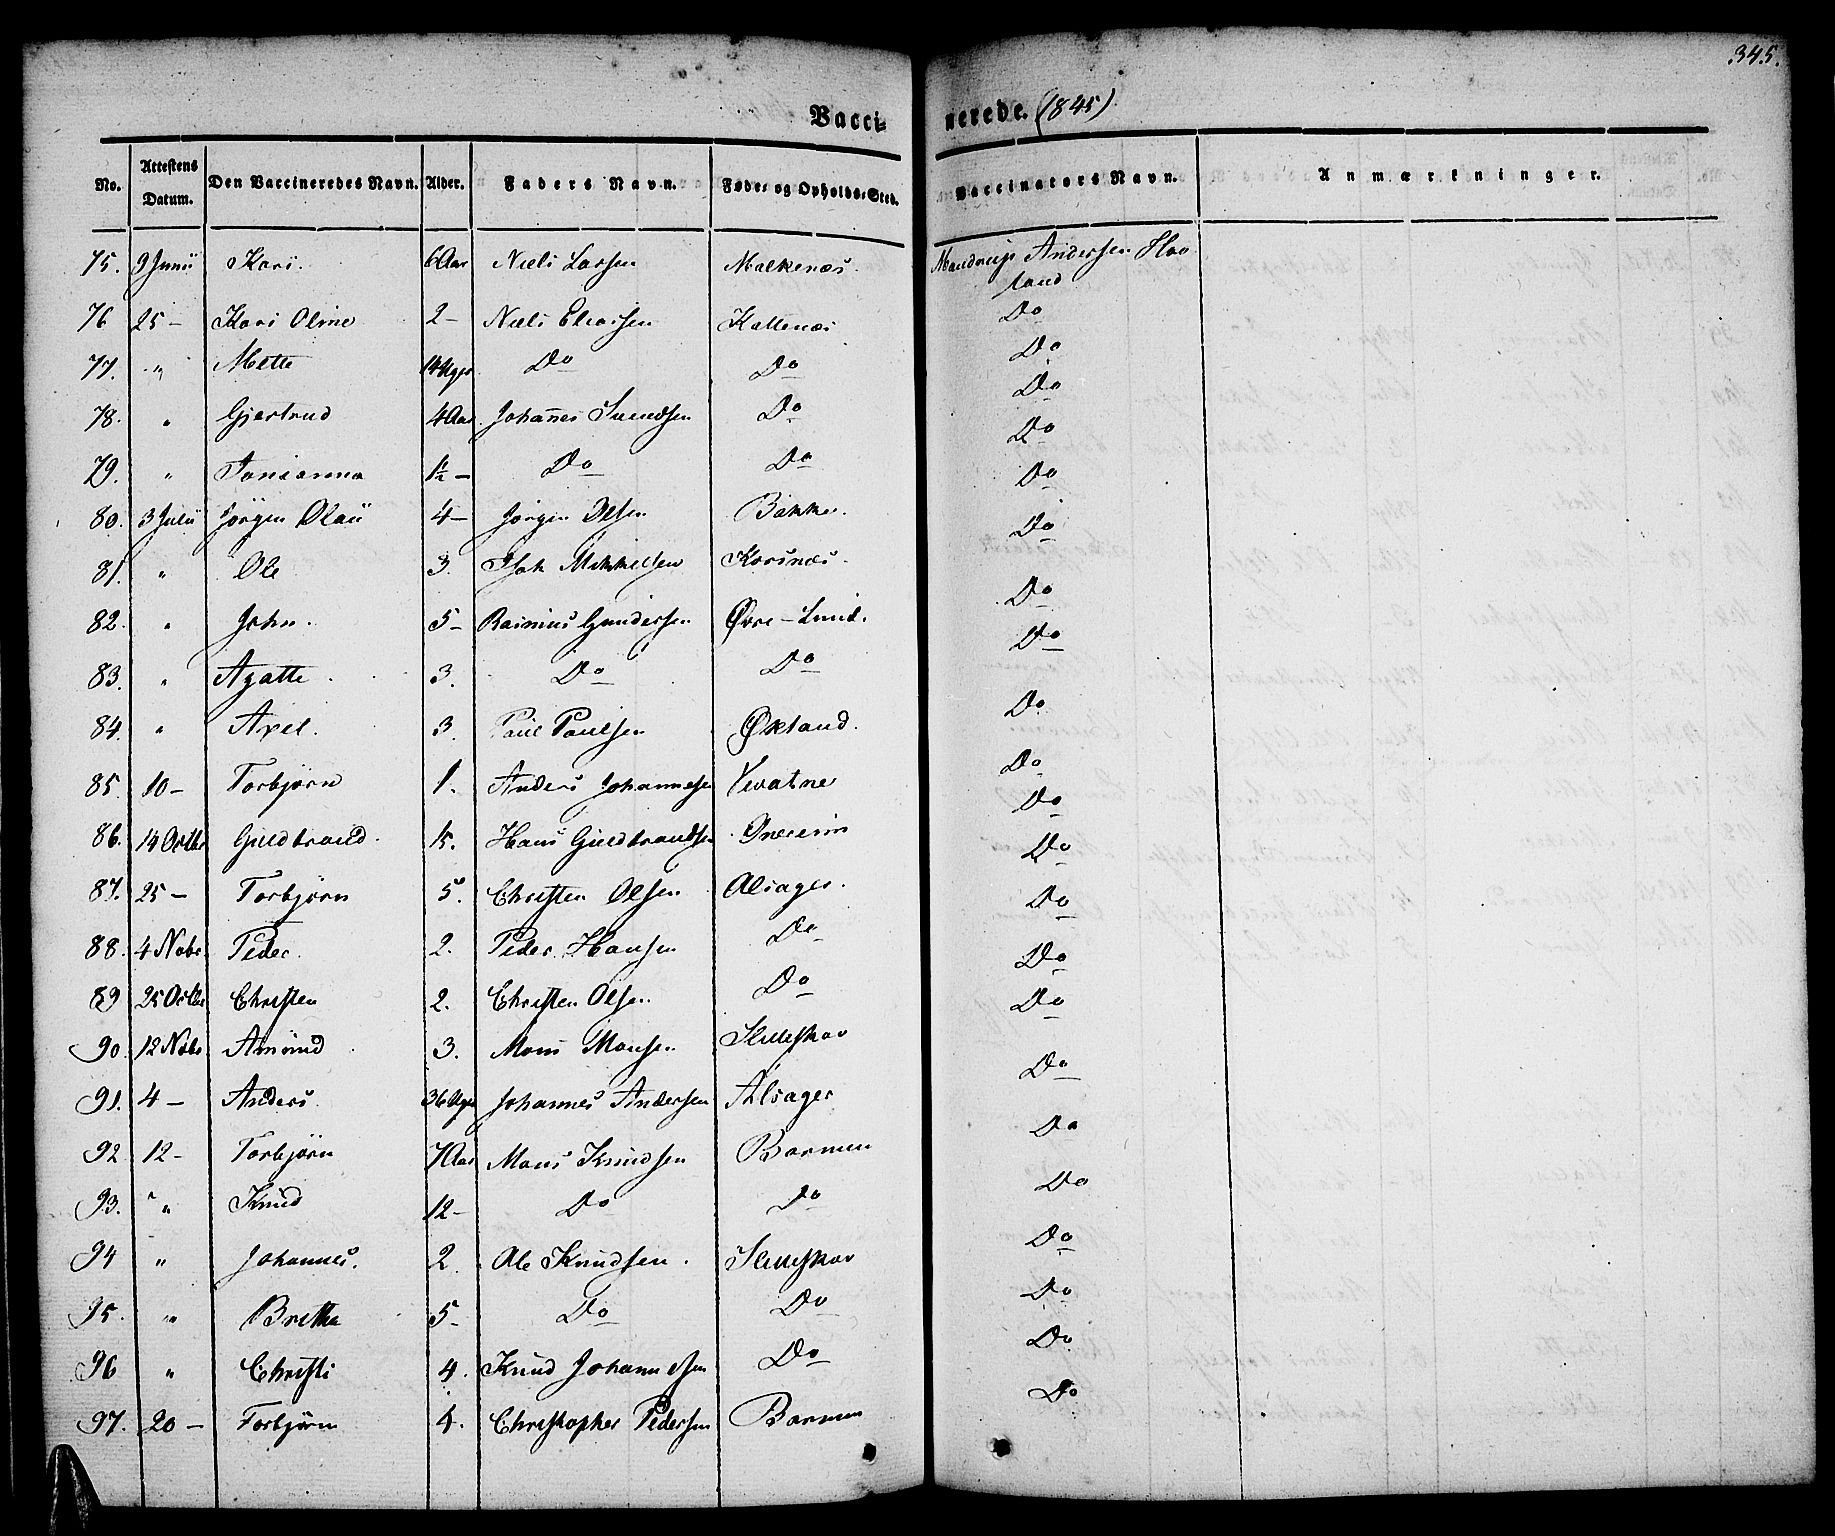 345.
Vaccinerede. (1845)
No. Attestens Datum. Den Vaccineredes Navn. Alder. Faders Navn. Føde- og Opholds-Sted. Vaccinators Navn. Anmærkninger.
75. 9 Junii Kari. 6 Aar Niels Larsen Malkenæs. Mandrup Andersen Haaland
76 25 – Kari Oline 2 – Niels Eliassen Kattenæs Do
77. " Mette 14 Uger Do Do Do
78. " Gjertrud 4 Aar Johannes Svendsen Do Do
79. " 1½ – Do Do Do
80. 3 Julii Jörgen Olai 4 – Jörgen Olsen Bakke. Do
81. " Ole 3. Isak Mikkelsen Korsnæs. Do
82. " John. 5 – Rasmus Gundersen Øvre – Lund. Do
83. " Agatte. 3. Do Do Do
84. " Axel. 3. Paul Paulsen Økland. Do
85. 10 – Torbjörn 1. Anders Johannesen Kvatne Do
86. 14 Octbr Guldbrand. Hans Guldbrandsen Do
87. 25 – Torbjörn 5. Christen Olsen Alsager. Do
88. 4 Nobr Peder. 2. Peder Hansen Do Do
89 25 Octbr Christen 2. Christen Olsen Do Do
90. 12 Nobr Amund 3. Mons Monsen Do
91. 4 – Anders 36 Uger Johannes Andersen Alsager Do
92 12 – Torbjörn 7 Aar Mons Knudsen Barmen Do
93. " Knud 12 – Do Do Do
94 " Johannes. 2. Ole Knudsen. Do
95. " Britha 5 – Do Do Do
96 " Christi 4. Knud Johannesen Do Do
97. 20 – Torbjörn 4. Christopher Pedersen Barmen Do